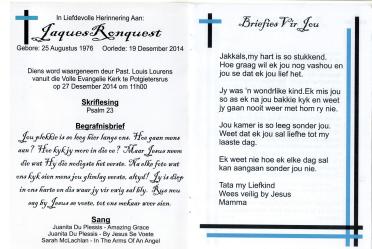 In Liefdevolle Herinnering Aan:
Jaques Ronquest
Gebore: 25 Augustus 1976 Oorlede: 19 Desember 2014
Diens word waargeneem deur Past. Louis Lourens
vanuit die Volle Evangelie Kerk te Potgietersrus
op 27 Desember 2014 om 11h00
Skriflesing
Psalm 23
Begrafnisbrief
Jou plekkie is so leeg hier langs ons. Hoe gaan mens
aan? Hoe kyk jy mere in die oe? Maar Jesus neem
die wat Hy nodigste het eerste. Na elke foto wat
ons kyk sien mens jou glimlag eerste, altyd! Jy is diep
in ons harte en dis waar jy vir ewig sal bly. Rus nou
sag by Jesus se voete, tot ons mekaar weer sien.
Sang
Juanita Du Plessis - Amazing Grace
Juanita Du Plessis - By Jesus Se Voete
Sarah McLachlan - In The Arms Of An Angel
Briefies Vir Jou
Jakkals,my hart is so stukkend.
Hoe graag wil ek jou nog vashou en
jou se dat ek jou lief het.
Jy was 'n wondrlike kind.Ek mis jou
so as ek na jou bakkie kyk en weet
jy gaan nooit weer met hom ry nie.
Jou kamer is so leeg sonder jou.
Weet dat ek jou sal liefhe tot my
laaste dag.
Ek weet nie hoe ek elke dag sal
kan aangaan sonder jou nie.
Tata my Liefkind
Wees veilig by Jesus
Mamma